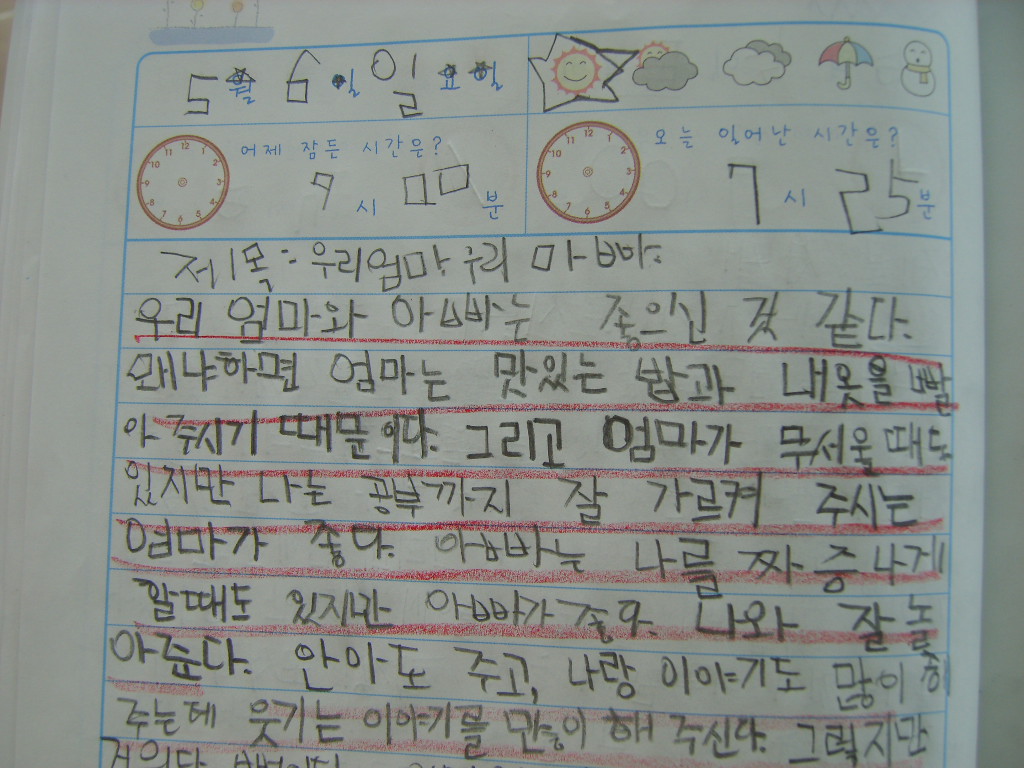 5월 6일 일요일
어제 잠든 시간은?
9시 00분
오늘 일어난 시간은?
7시 25분
제목: 우리엄마 우리 아빠
우리 엄마와 아빠는 좋으신 것 같다.
왜냐하면 엄마는 맛있는 밥과 내옷을 빨
아 주시기 때문이다. 그리고 엄마가 무서울때도
있지만 나는 공부까지 잘 가르켜 주시는
엄마가 좋다. 아빠는 나를 짜증나게
할때도 있지만 아빠가 좋다. 나와 잘 놀
아준다. 안아도 주고, 나랑 이야기도 많이 해
주는데 웃기는 이야기를 많이 해 주신다. 그렇지만